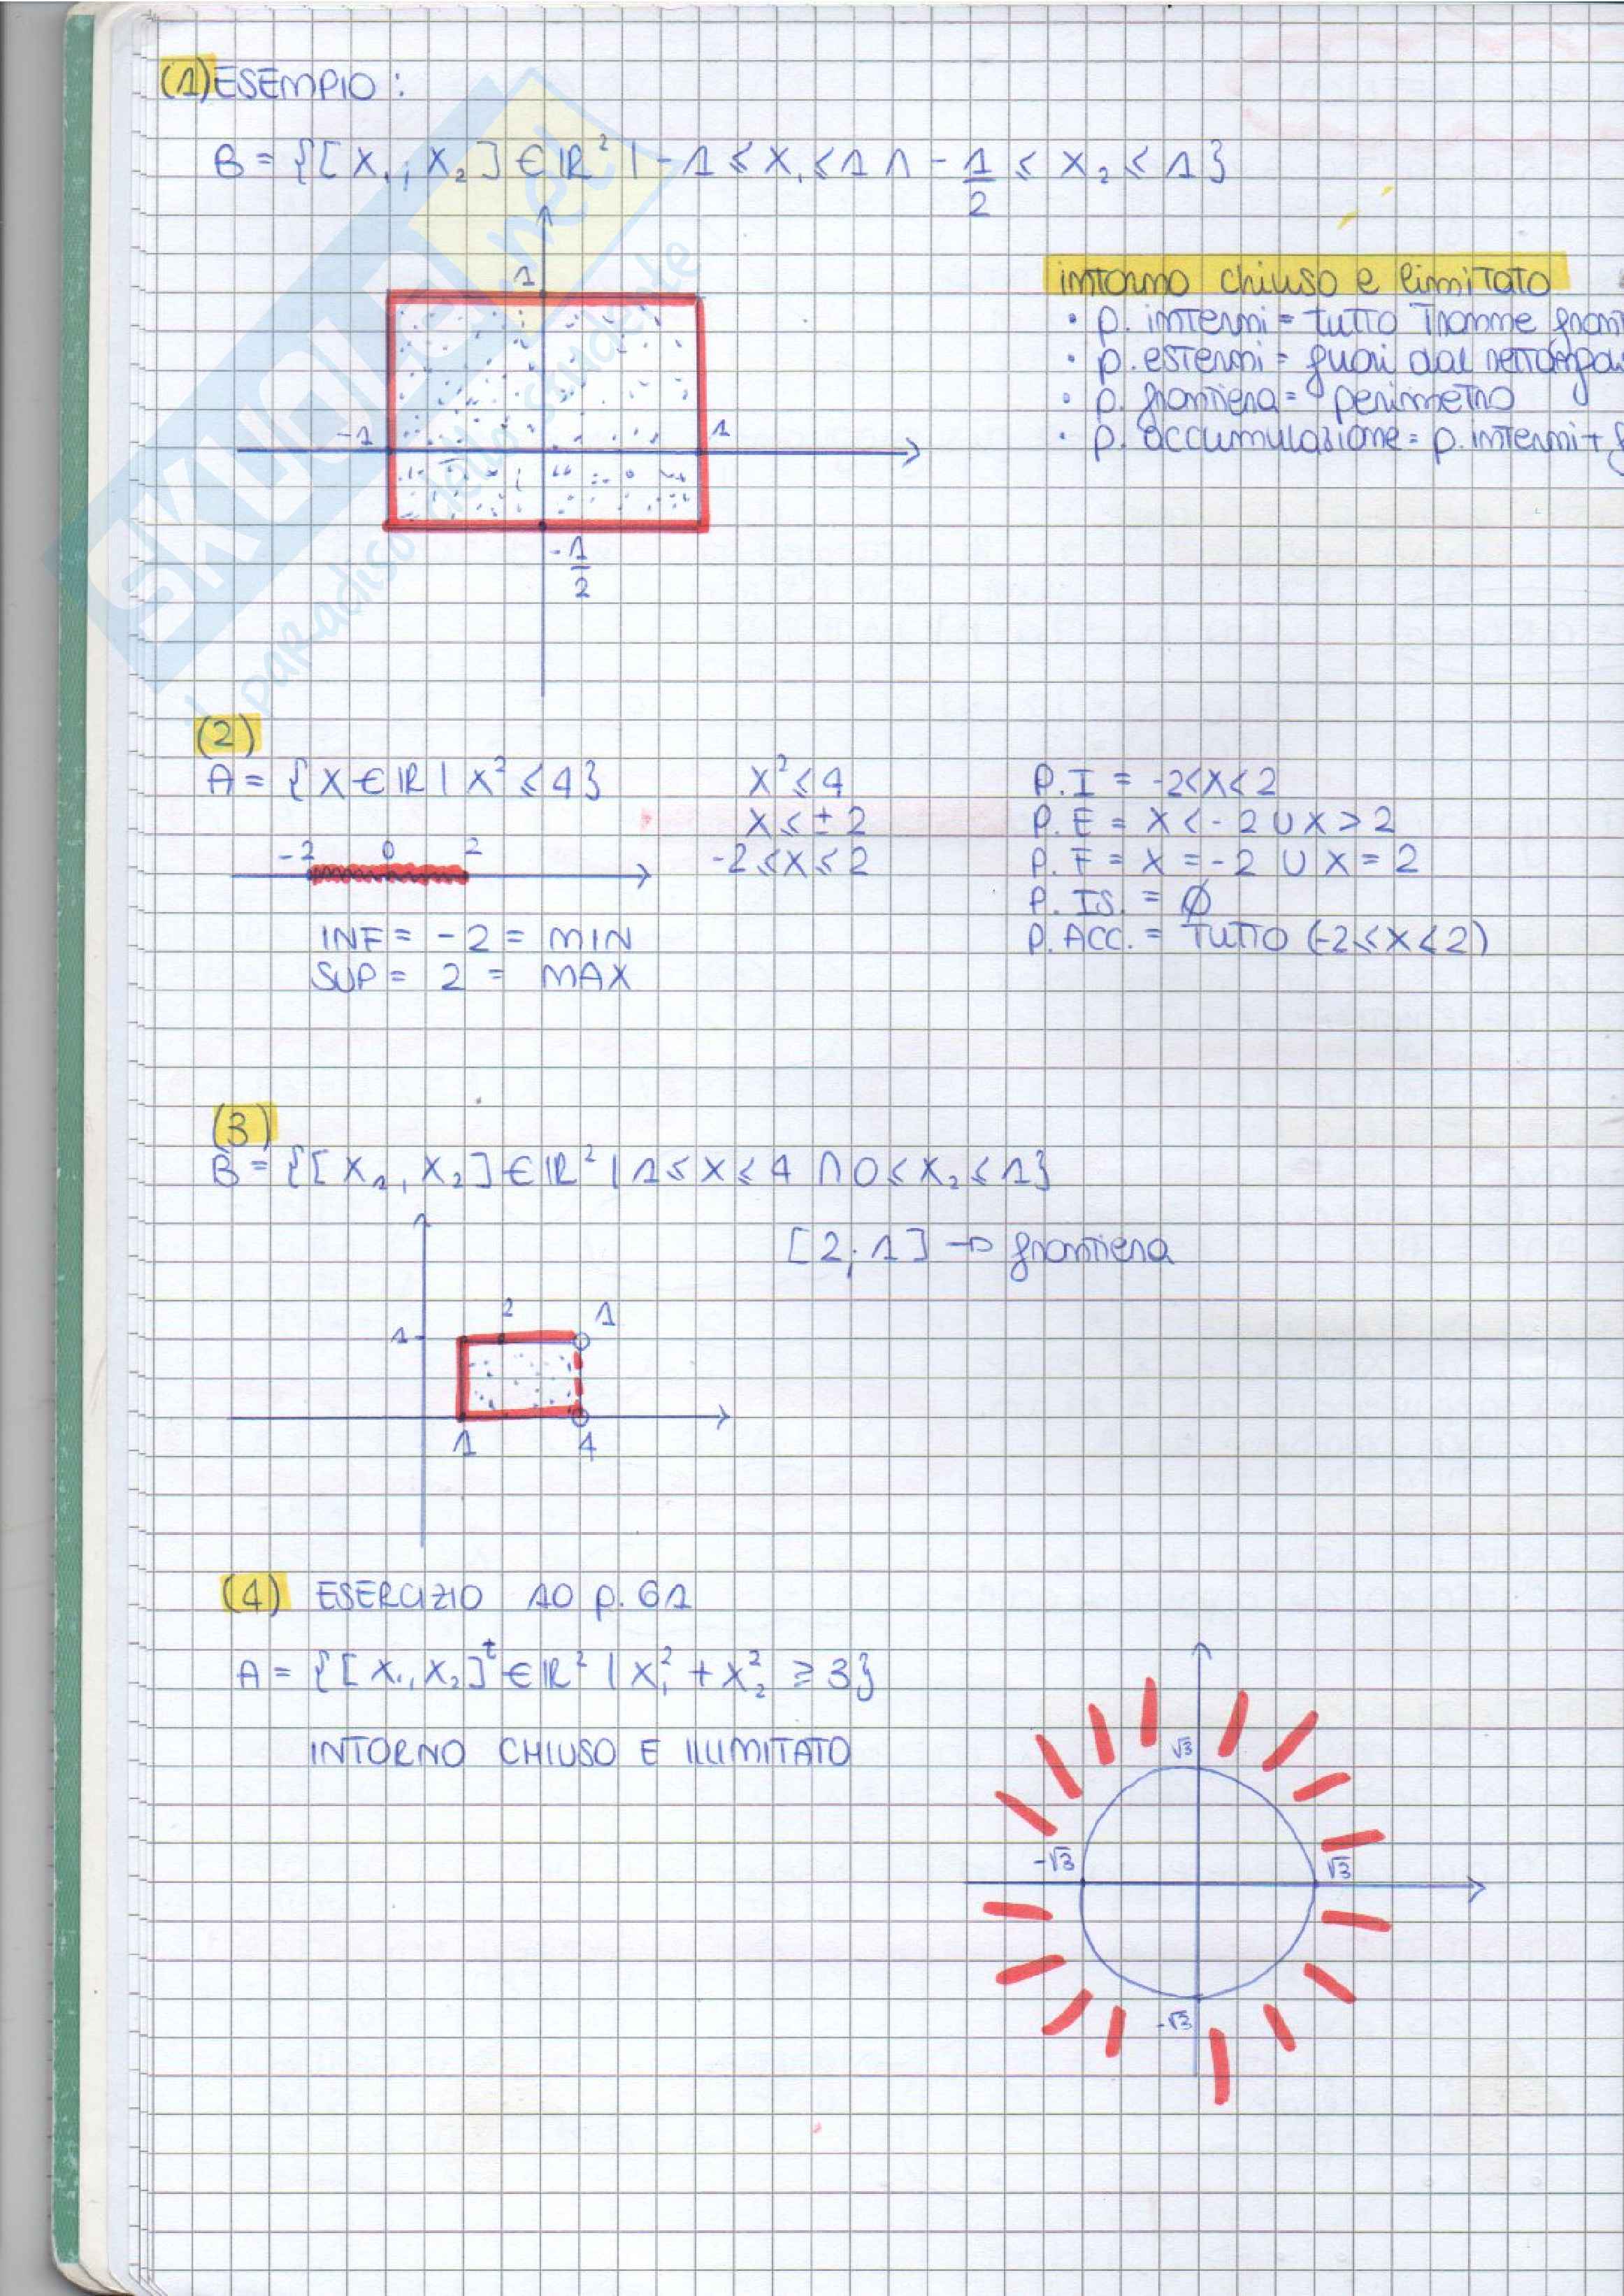 (1) ESEMPIO :
B = {[X₁, X₂] ∈ ℝ² | -1 ≤ X₁ ≤ 1 ∩ -1/2 ≤ X₂ ≤ 1}
1
-1
1
-1/2
intorno chiuso e limitato
• p. interni = tutto tranne
• p. esterni = fuori dal
• p. frontiera = perimetro
• p. accumulazione = p. interni +
SKUOLA.net
il paradiso dello studente
(2)
A = {X ∈ ℝ | X² ≤ 4}
X² ≤ 4
P.I = -2<X<2
X ≤ ±2
P.E = X < -2 ∪ X > 2
-2 0 2
-2 ≤ X ≤ 2
P.F = X = -2 ∪ X = 2
P. IS. = Ø
INF = -2 = MIN
P. ACC. = TUTTO (-2 ≤ X ≤ 2)
SUP = 2 = MAX
(3)
B = {[X₁, X₂] ∈ ℝ² | 1 ≤ X ≤ 4 ∩ 0 ≤ X₂ ≤ 1}
[2; 1] → frontiera
2 1
1
1 4
(4) ESERCIZIO 10 p. 61
A = {[X₁, X₂]ᵗ ∈ ℝ² | X₁² + X₂² ≥ 3}
INTORNO CHIUSO E ILLIMITATO
√3
-√3
√3
-√3